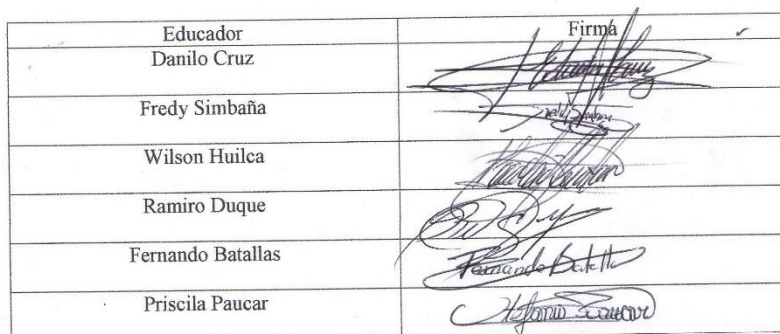 Educador Firma
Danilo Cruz
Fredy Simbaña Fredy Simbaña
Wilson Huilca
Ramiro Duque
Fernando Batallas Fernando Batalla
Priscila Paucar